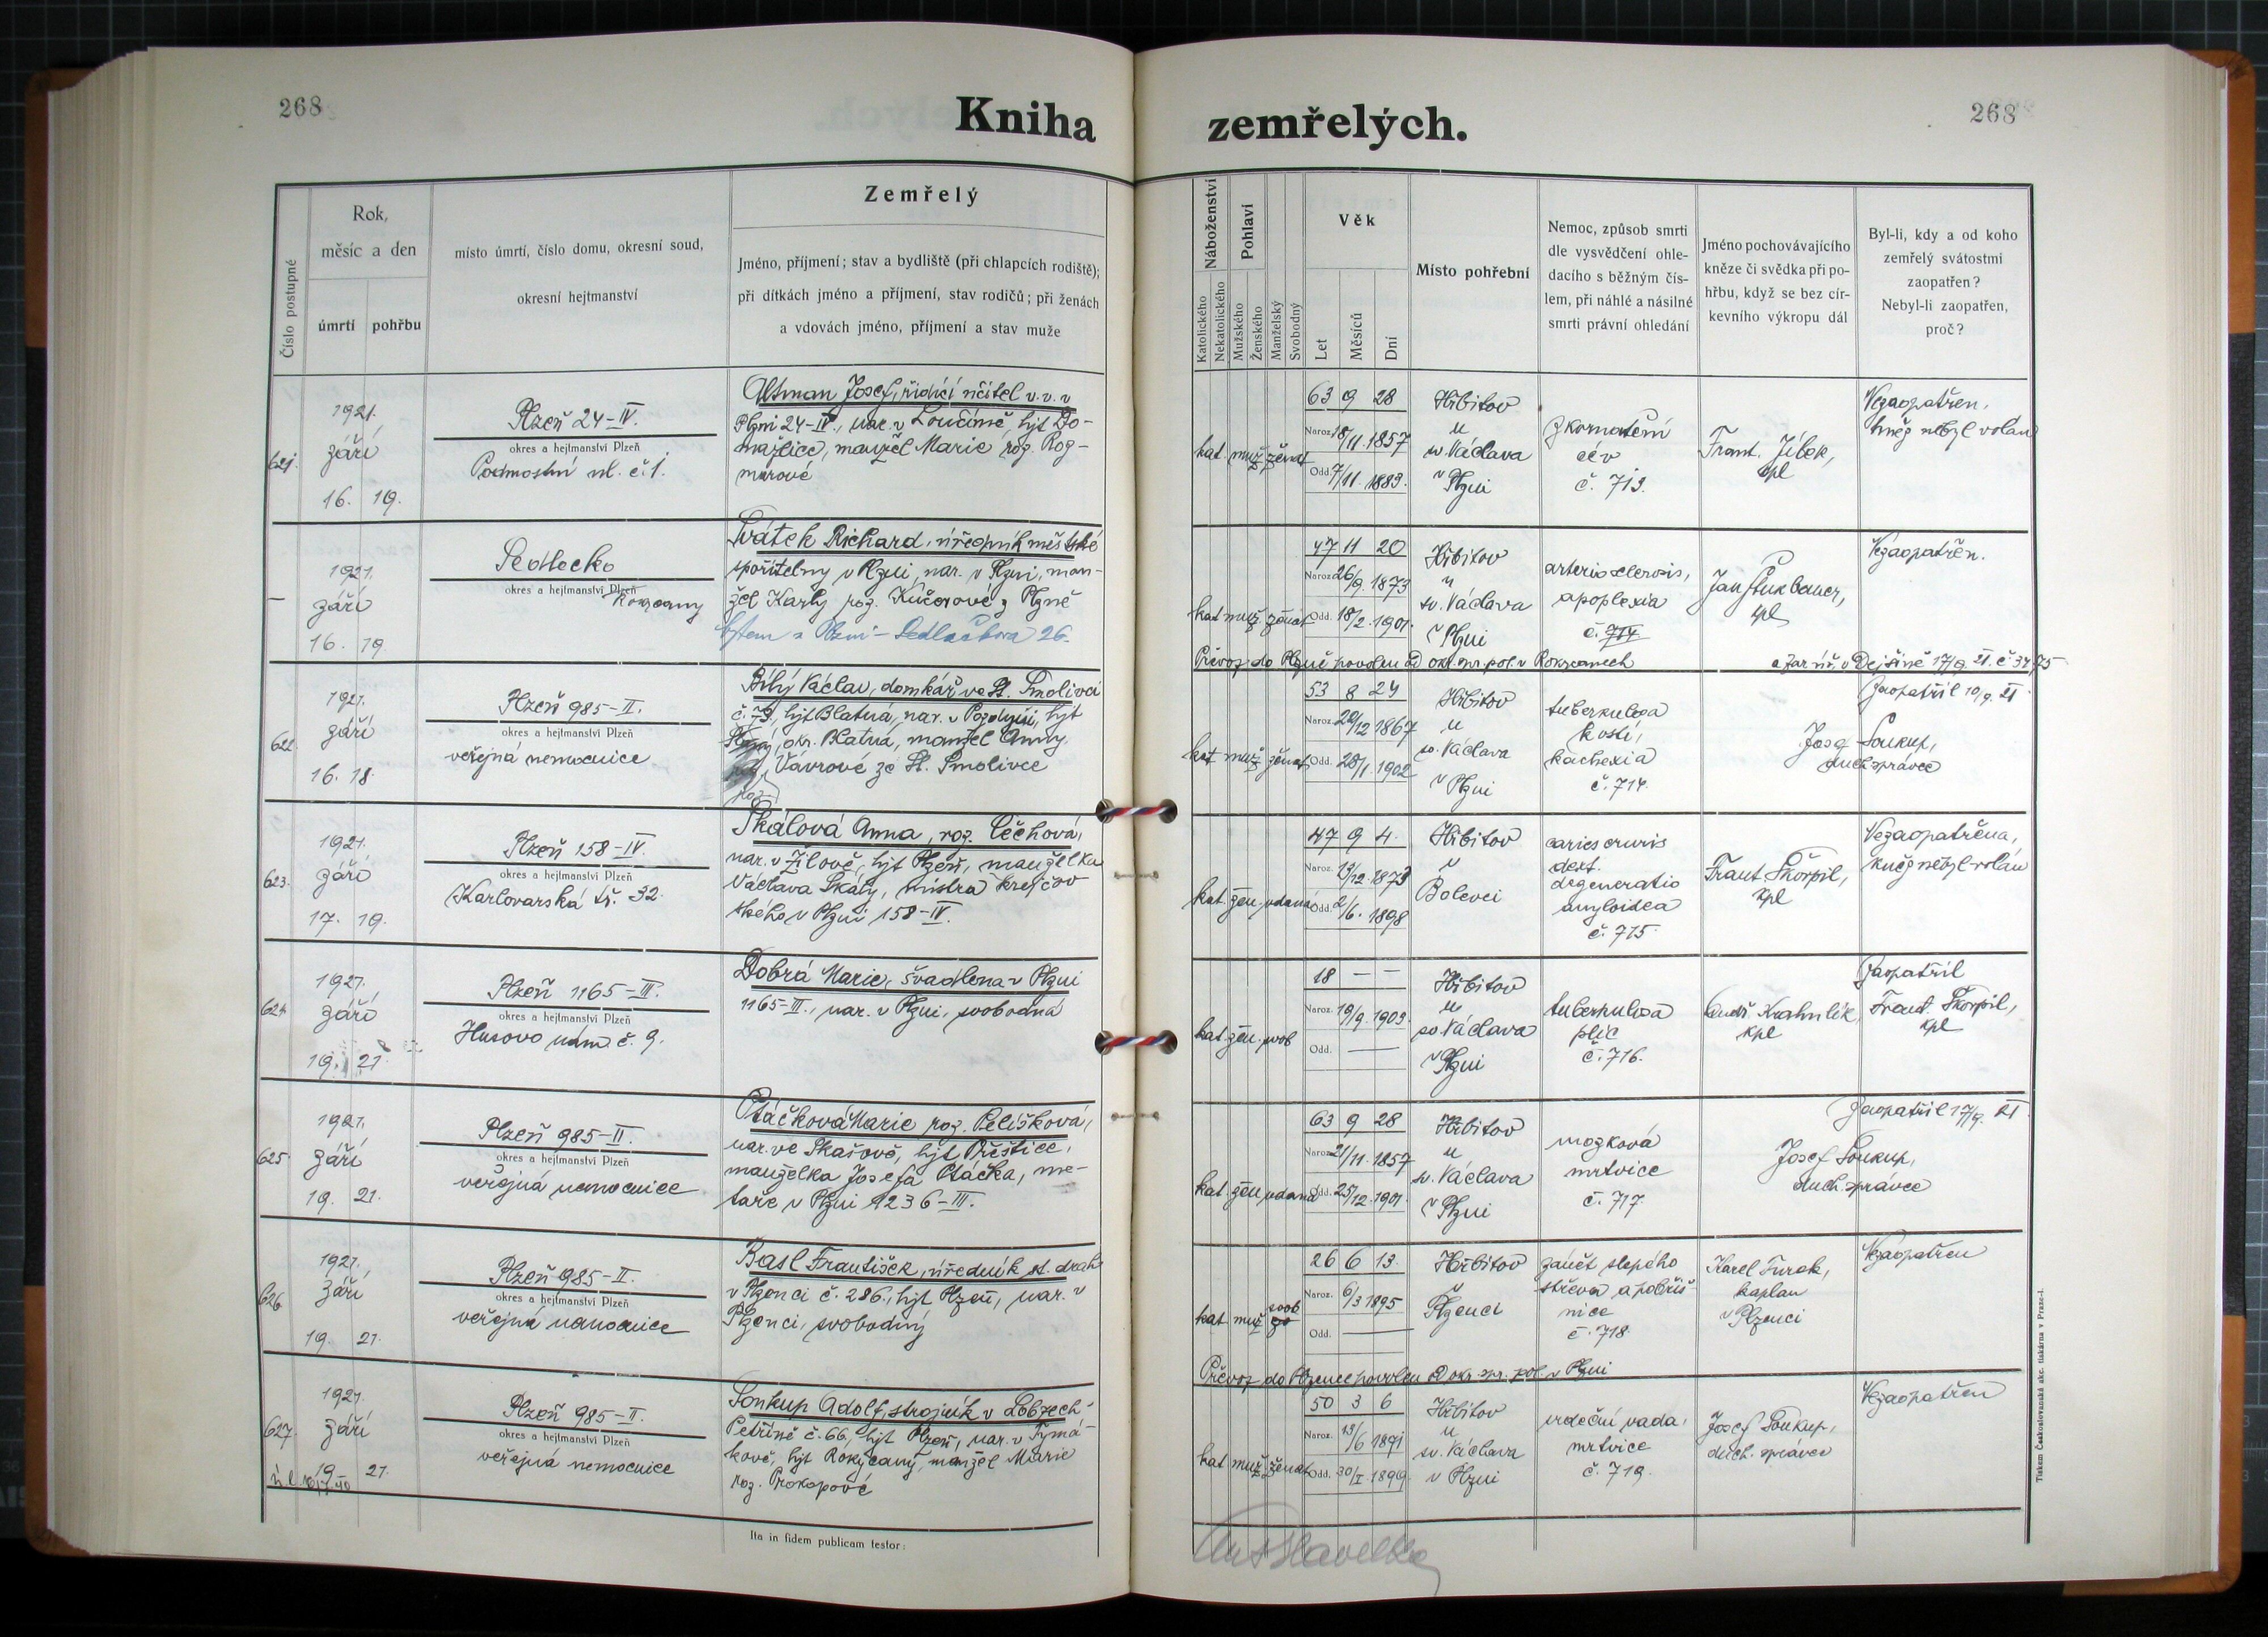 268
Kniha
zemřelých.
268
Číslo postupné
Rok,
měsíc a den
úmrtí
pohřbu
místo úmrtí, číslo domu, okresní soud,
okresní hejtmanství
Zemřelý
Jméno, příjmení; stav a bydliště (při chlapcích rodiště);
při dítkách jméno a příjmení, stav rodičů; při ženách
a vdovách jméno, příjmení a stav muže
Náboženství
Katolického
Nekatolického
Pohlaví
Mužského
Ženského
Manželský
Svobodný
Věk
Let
Měsíců
Dní
Místo pohřební
Nemoc, způsob smrti
dle vysvědčení ohle-
dacího s běžným čís-
lem, při náhlé a násilné
smrti právní ohledání
Jméno pochovávajícího
kněze či svědka při po-
hřbu, když se bez cír-
kevního výkropu dál
Byl-li, kdy a od koho
zemřelý svátostmi
zaopatřen?
Nebyl-li zaopatřen,
proč?
621.
1921.
září
16. 19.
Plzeň 24-IV.
okres a hejtmanství Plzeň
Podmostní ul. č. 1.
Altman Josef, řídící učitel v. v. v
Plzni 24-IV., nar. v Loučimě, hjt Do-
mažlice, manžel Marie roz. Rog-
nerové
kat. muž. ženat
63 9 28
Naroz. 18/11. 1857
Odd. 7/11. 1883.
Hřbitov
u
sv. Václava
v Plzni
zkornatění
cév
č. 713.
Frant. Jílek,
kpl
Nezaopatřen,
kněz nebyl volán
1921.
září
16. 19.
Sedlecko
okres a hejtmanství Plzeň
Rokycany
Svátek Richard, úředník městské
spořitelny v Plzni, nar. v Plzni, man-
žel Karly roz. Kučerové z Plzně
bytem v Plzni - Sedláčkova 26.
kat. muž. ženat
47 11 20
Naroz. 26/9. 1873
Odd. 18/2. 1901.
Hřbitov
u
sv. Václava
v Plzni
arteriosclerosis,
apoplexia
č. 714
Jan
kpl
Nezaopatřen.
Převoz do Plzně povolen od okr. spr. pol. v Rokycanech
a far. úř. v Dejšině 17/9. 21. č.
622.
1921.
září
16. 18.
Plzeň 985-II.
okres a hejtmanství Plzeň
veřejná nemocnice
Bílý Václav, domkář ve St. Smolivci
č. 73, hjt Blatná, nar. v Pozdyni, hjt
okr. Blatná, manžel Anny
Vávrové ze St. Smolivce
roz.
kat. muž. ženat
53 8 24
Naroz. 20/12 1867
Odd. 28/1. 1902
Hřbitov
u
sv. Václava
v Plzni
tuberkulosa
kostí,
kachexia
č. 714.
Josef Soukup,
duch. správce
Zaopatřil 10/9. 21
623.
1921.
září
17. 19.
Plzeň 158-IV.
okres a hejtmanství Plzeň
Karlovarská tř. 32.
Skálová Anna, roz. Čechová,
nar. v Žilově, hjt Plzeň, manželka
Václava Skály, mistra krejčov
ského v Plzni 158-IV.
kat. žen. vdaná
47 9 4.
Naroz. 13/12. 1873
Odd. 2/6. 1898
Hřbitov
v
Bolevci
caries cruris
dext.
degeneratio
amyloidea
č. 715.
Frant Škorpil,
kpl
Nezaopatřena,
kněz nebyl volán
624
1921.
září
19. 21.
Plzeň 1165-III.
okres a hejtmanství Plzeň
Husovo nám. č. 9.
Dobrá Marie, švadlena v Plzni
1165-III., nar. v Plzni, svobodná
kat. žen. svob
18 — —
Naroz. 19/9. 1903.
Odd. —
Hřbitov
u
sv. Václava
v Plzni
tuberkulosa
plic
č. 716.
Ondř. Krahulík,
kpl
Zaopatřil
Frant. Škorpil,
kpl
625
1921.
září
19. 21.
Plzeň 985-II.
okres a hejtmanství Plzeň
veřejná nemocnice
Ptáčková Marie roz. Pelíšková,
nar. ve Skašově, hjt Přeštice,
manželka Josefa Ptáčka, me-
taře v Plzni 1236-III.
kat. žen. vdaná
63 9 28
Naroz. 21/11. 1857
Odd. 25/12. 1901.
Hřbitov
u
sv. Václava
v Plzni
mozková
mrtvice
č. 717.
Josef Soukup,
duch. správce
Zaopatřil 17/9. 21
626
1921.
září
19. 21.
Plzeň 985-II.
okres a hejtmanství Plzeň
veřejná nemocnice
Basl František, úředník st. drah
v Plzenci č. 286., hjt Plzeň, nar. v
Plzenci, svobodný
kat. muž. svob
26 6 13.
Naroz. 6/3 1895
Odd. —
Hřbitov
v
Plzenci
zánět slepého
střeva a pobřiš-
nice
č. 718.
Karel Turek,
kaplan
v Plzenci
Nezaopatřen
Převoz do Plzence povolen od okr. spr. pol. v Plzni
627.
1921.
září
19 21.
Plzeň 985-II.
okres a hejtmanství Plzeň
veřejná nemocnice
Soukup Adolf, strojník v Lobzech
Petříně č. 66, hjt Plzeň, nar. v Týmá-
kově, hjt Rokycany, manžel Marie
roz. Prokopové
kat. muž. ženat
50 3 6
Naroz. 13/6 1871
Odd. 30/I. 1899.
Hřbitov
u
sv. Václava
v Plzni
srdeční vada,
mrtvice
č. 719.
Josef Soukup,
duch. správce
Nezaopatřen
Ita in fidem publicam testor:
Tiskem Českoslovanská akc. tiskárna v Praze-I.